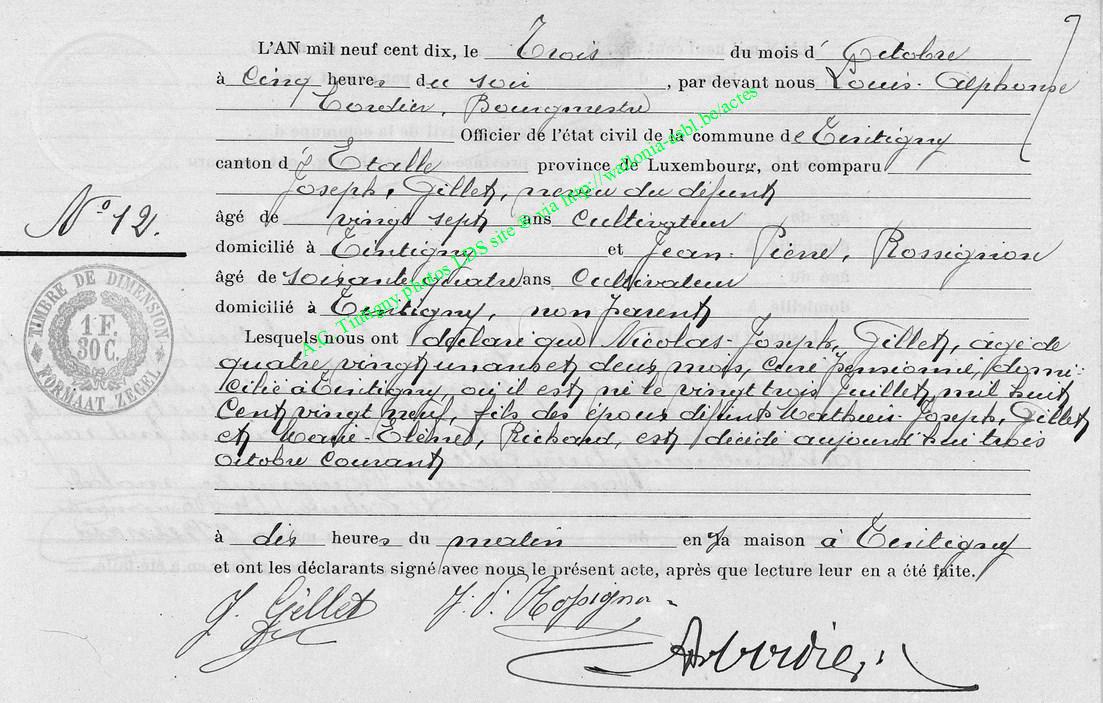 L'AN mil neuf cent dix, le Trois du mois d' Octobre
à Cinq heures du soir, par devant nous Louis-Alphonse
Cordier, Bourgmestre
Officier de l'état civil de la commune de Tintigny
canton d' Etalle province de Luxembourg, ont comparu
Joseph, Gillet, neveu du défunt
N° 12.
âgé de vingt sept ans Cultivateur
domicilié à Tintigny et Jean-Pierre, Rossignon
âgé de soixante quatre ans Cultivateur
domicilié à Tintigny, non parent
Lesquels nous ont déclaré que Nicolas-Joseph, Gillet, âgé de
quatre vingt un ans et deux mois, curé pensionné, domi-
cilié à Tintigny, où il est né le vingt trois Juillet, mil huit
Cent vingt neuf, fils des époux défunts Mathieu-Joseph, Gillet
et Marie-Hélène, Richard, est décédé aujourd'hui trois
octobre courant
à dix heures du matin en sa maison à Tintigny
et ont les déclarants signé avec nous le présent acte, après que lecture leur en a été faite.
J. Gillet J. P. Rossignon
A Cordier
TIMBRE DE DIMENSION
1 F.
30 C.
FORMAAT ZEGEL
A.G. Tintigny photos LDS site © via http://wallonia-asbl.be/actes